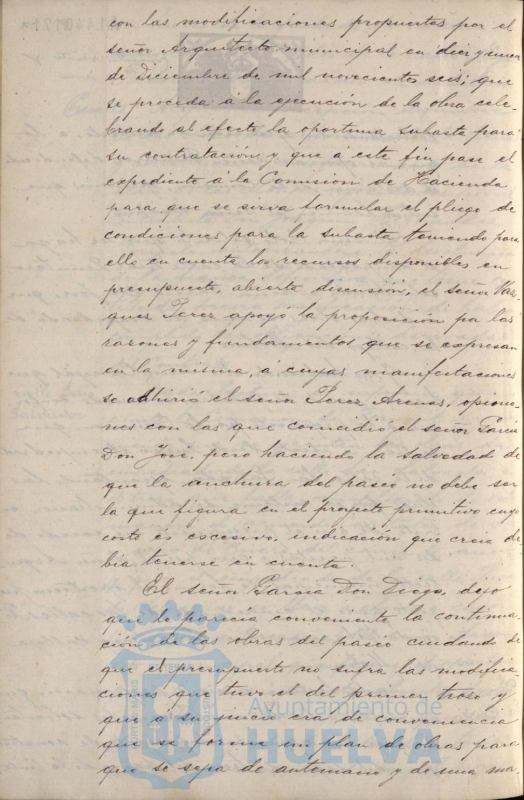 con las modificaciones propuestas por el
señor Arquitecto municipal en diez y nueve
de Diciembre de mil novecientos seis; que
se proceda á la ejecución de la obra cele-
brando al efecto la oportuna subasta para
su contratación y que á este fin pase el
expediente á la Comision de Hacienda
para que se sirva formular el pliego de
condiciones para la subasta teniendo para
ello en cuenta los recursos disponibles en
presupuesto, abierta discusión, el señor Vaz-
quez Perez apoyó la proposición por las
razones y fundamentos que se expresan
en la misma, á cuyas manifestaciones
se adhirió el señor Perez Arenas, opinio-
nes con las que coincidió el señor Garcia
Don José, pero haciendo la salvedad de
que la anchura del paseo no debe ser
la que figura en el proyecto primitivo cuyo
coste es excesivo, indicación que creia de-
bia tenerse en cuenta.
El señor Garcia Don Diego, dijo
que le parecía conveniente la continua-
ción de las obras del paseo cuidando de
que el presupuesto no sufra las modifica-
ciones que tuvo el del primer trozo y
que á su juicio era de conveniencia
que se forme un plan de obras para
que se sepa de antemano y de una ma-
Ayuntamiento de
HUELVA